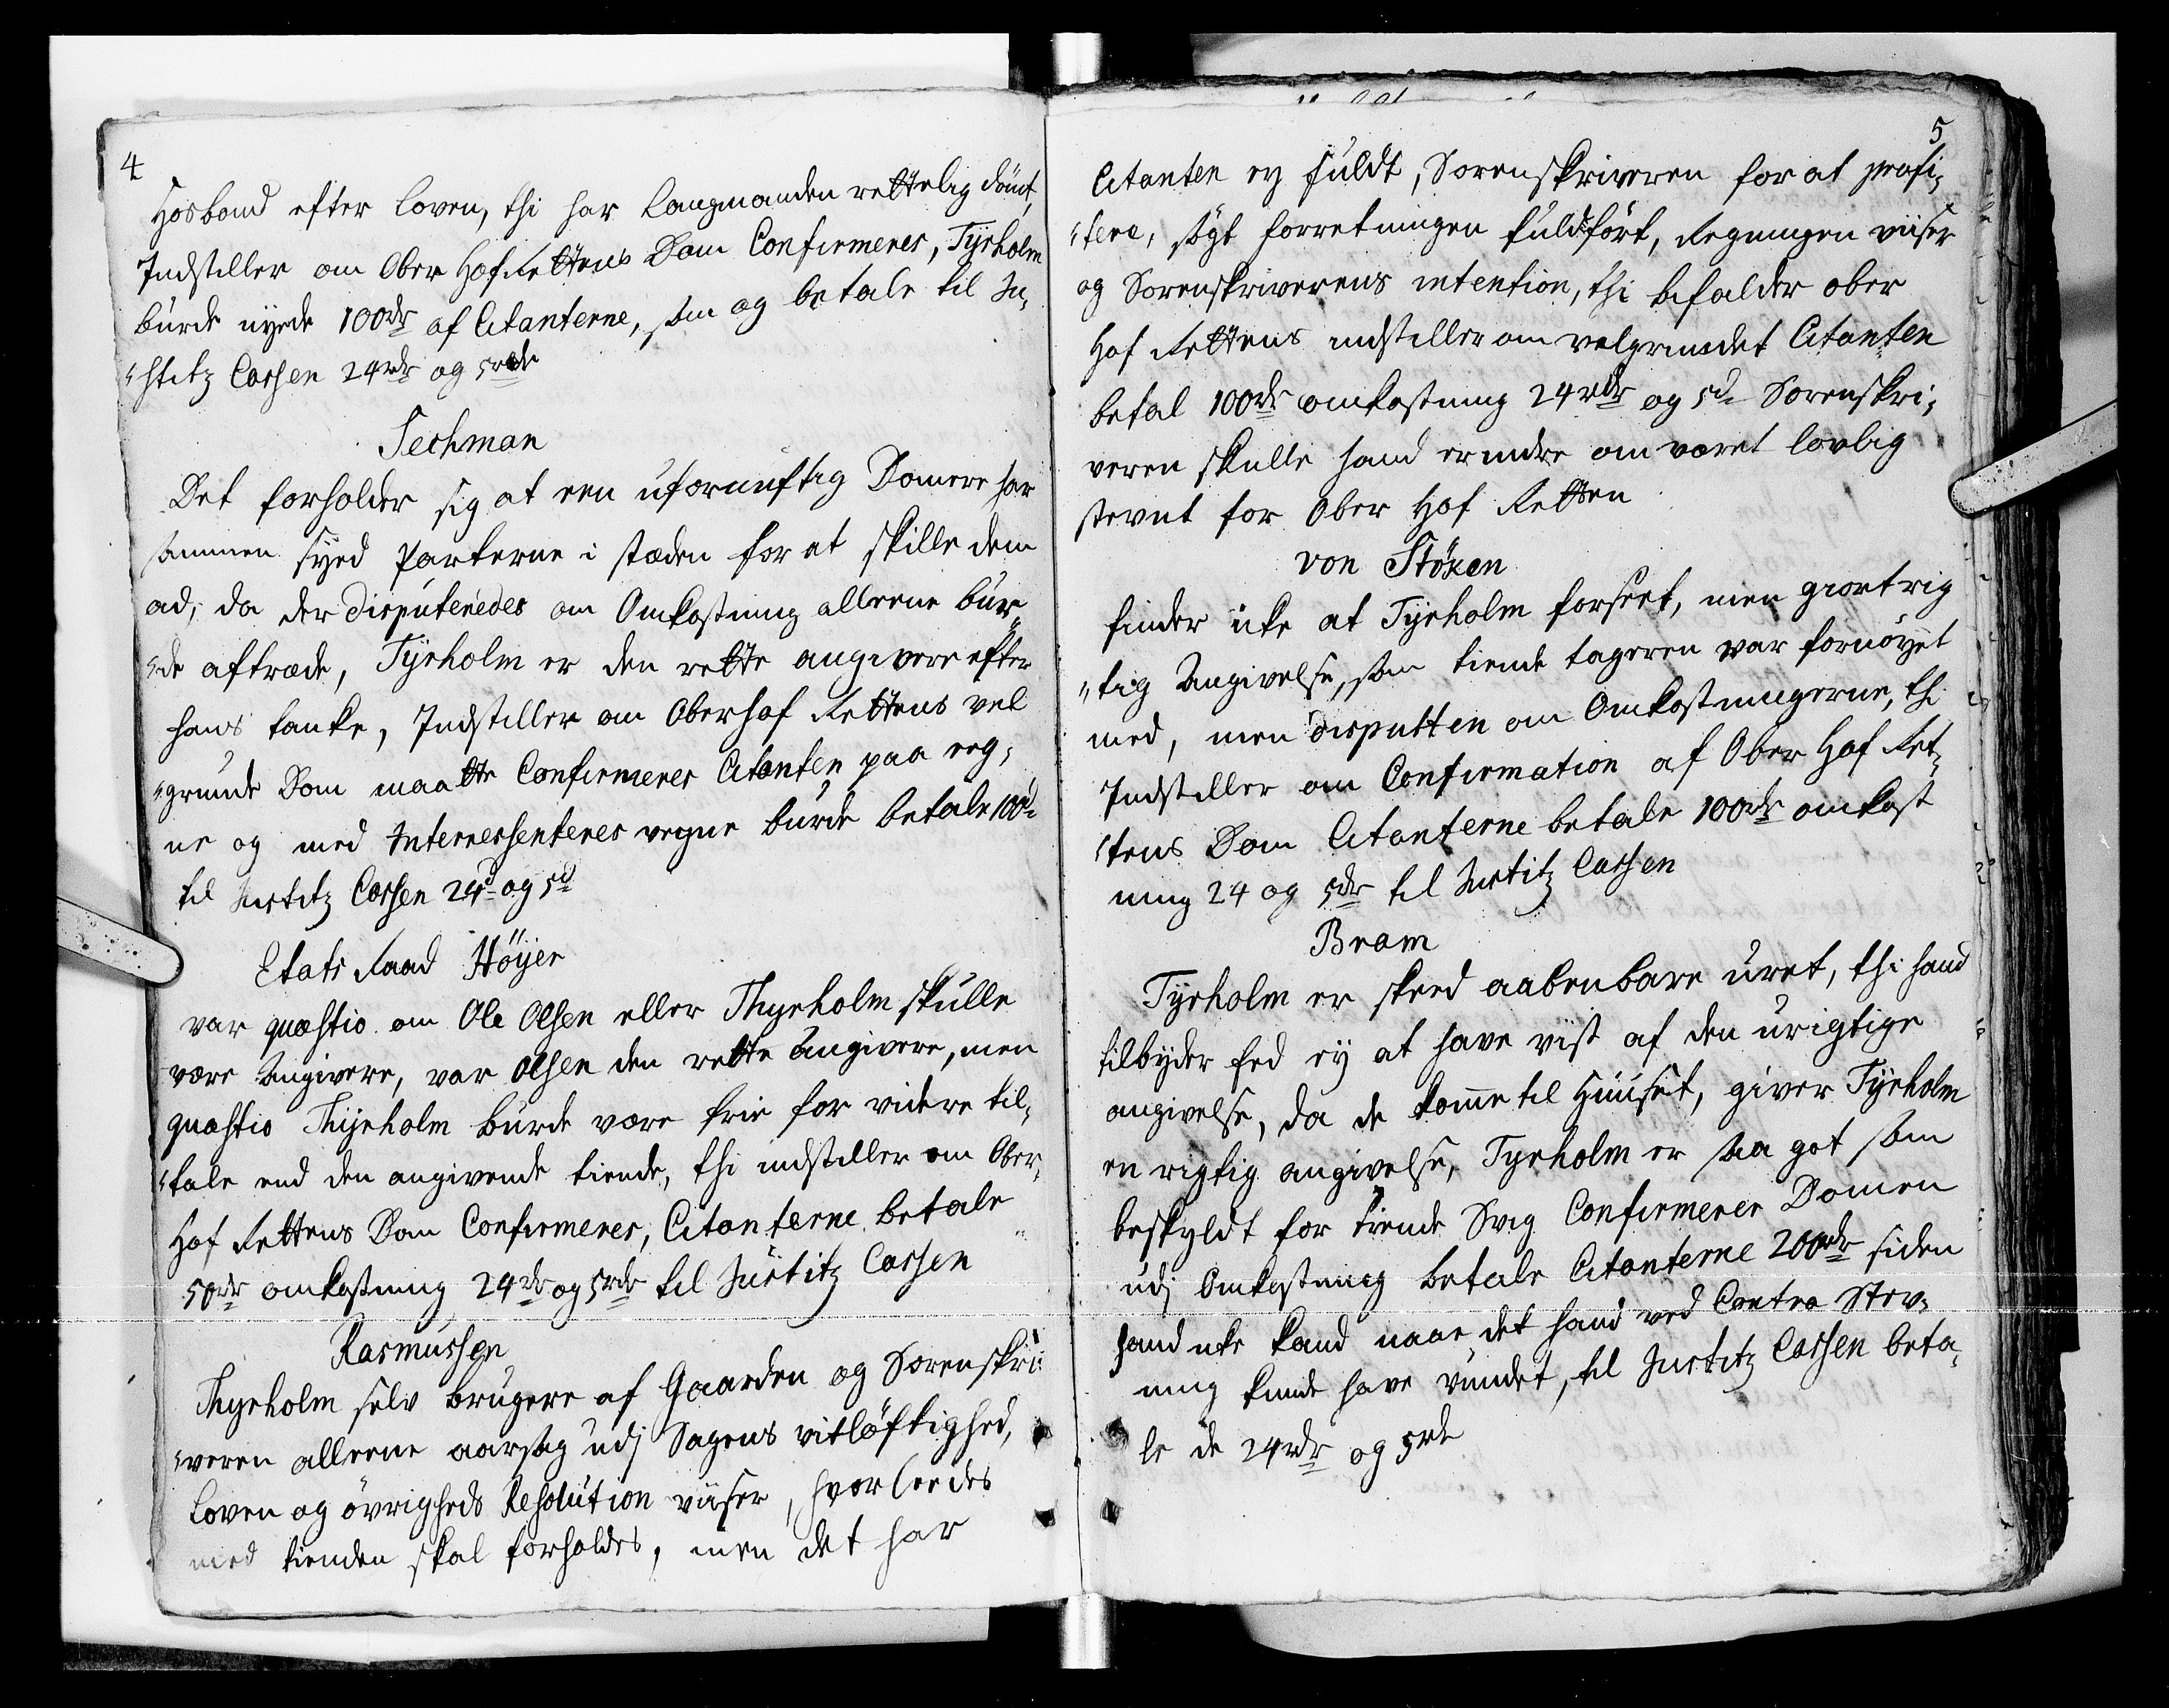 4
Hosbond efter loven, thi har Laugmanden rettelig dömt,
Indstiller om Ober HofRettens Dom Confirmeres, Tyrholm
burde nyde 100rdr af Citanterne, som og betale til Ju-
stitz Cassen 24rdr og 5rdr
Techman
Det forholder sig at een ufornuftig Domere har
sammen syed Parterne i stæden for at skille dem
ad, da der disputeredes om Omkostning alleene bur-
de aftræde, Tyrholm er den rette angivere efter
hans tanke, Indstiller om Oberhof Rettens vel
grunde Dom maatte Confirmeres Citanten paa eeg-
ne og med Interressenteres vegne burde betale 100d
til Justitz Cassen 24d og 5d
Etats Raad Höyer
var quæstio om Ole Olsen eller Thyrholm skulle
være Angivere, var Olsen den rette Angivere, men
quæstio Thyrholm burde være frie for videre til-
tale end den angivende tiende, thi indstiller om Ober-
Hof Rettens Dom Confirmeres, Citanterne betale
50rdr omkostning 24rdr og 5rdr til Justitz Cassen
Rasmussen
Thyrholm selv brugere af Gaarden og Sorenskri-
veren alleene aarsag udj Sagens vitlöftighed,
Loven og övrigheds Resolution viiser, hvorleedes
med tienden skal forholdes, men det har
5
Citanten ey fuldt, Sorenskriveren for at profi-
tere, sögt forretningen fuldfört, Regningen viiser
og Sorenskriverens intention, thi befalder ober
Hof Rettens indstiller om velgrundet Citanten
betal 100rdr omkostning 24rdr og 5d Sorenskri-
veren skulle hand erindre om været lovlig
stevnt for Ober Hof Retten
von Stöken
finder icke at Tyrholm forseet, men giort rig
tig Angivelse, som tiende tageren var fornöyet
med, men disputten om Omkostningerne, thi
Indstiller om Confirmation af Ober Hof Ret-
tens Dom Citanterne betale 100rdr omkost
ning 24 og 5rdr til Justitz Cassen
Bram
Tyrholm er skeed aabenbare uret, thi hand
tilbyder Eed ey at have vist af den urigtige
angivelse, da de komme til Huuset, giver Tyrholm
en rigtig angivelse, Tyrholm er saa got som
beskyldt for tiende Svig Confirmerer Domen
udj Omkostning betale Citanterne 200rdr siden
hand icke kand naae det hand ved Contra Stev-
ning kunde have vundet, til Justitz Cassen beta-
le de 24rdr og 5rdr